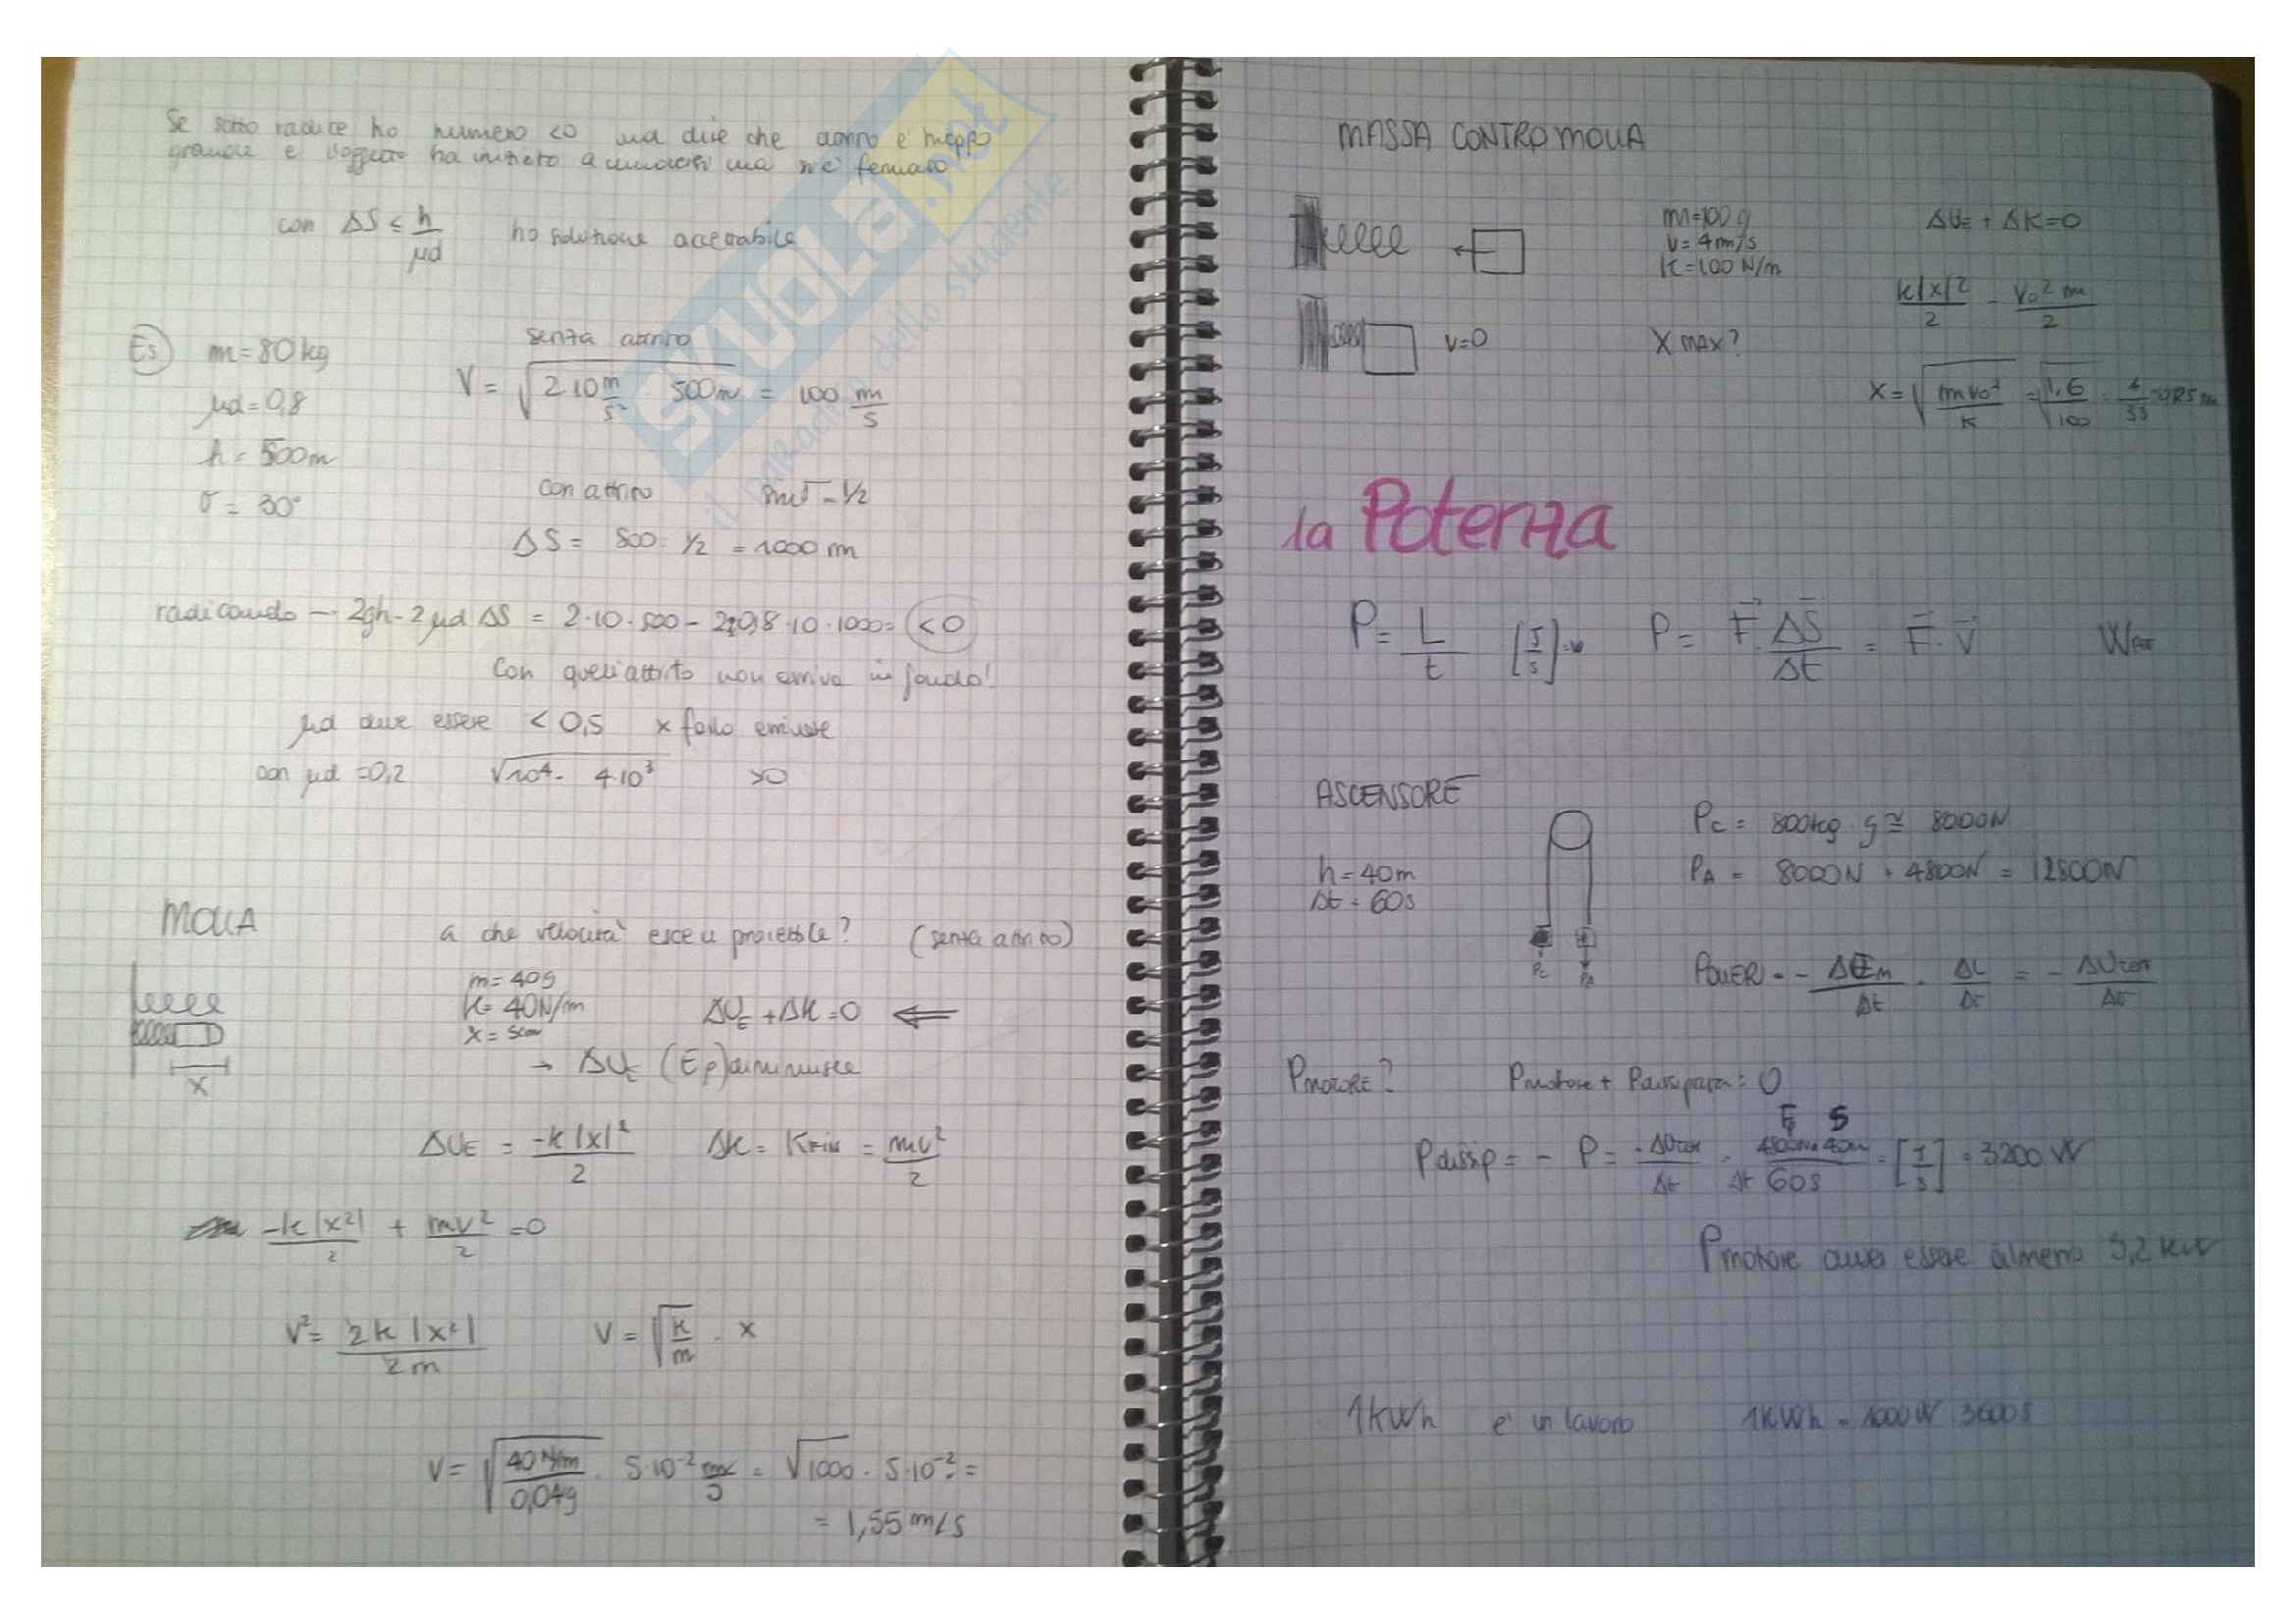 Se sotto radice ho numero <0 vuol dire che attrito è troppo
grande e l'oggetto ha iniziato a muoversi ma si è fermato
con ΔS ≤ h/μd ho soluzione accettabile
Es m=80kg
μd=0,8
h=500m
σ=30°
senza attrito
V = √(2·10 m/s² · 500m) = 100 m/s
con attrito sinσ=1/2
ΔS = 500 : 1/2 = 1000 m
radicando → 2gh-2μd ΔS = 2·10·500 - 2·0,8·10·1000= <0
Con quell'attrito non arriva in fondo!
μd deve essere < 0,5 x farlo arrivare
con μd =0,2 √10⁴- 4·10³ >0
MOLLA
a che velocità esce il proiettile? (senza attrito)
m=40g
K=40N/m
x=5cm
ΔUE+ΔK=0 ⇐
→ ΔUE (Ep) diminuisce
x
ΔUE = -k|x|²/2 ΔK = KFIN = mv²/2
-k|x²|/2 + mv²/2 =0
V²= 2k|x²|/2m V = √(k/m) · x
V= √(40 N/m/0,04g) · 5·10⁻² = √1000 · 5·10⁻² =
= 1,55 m/s
MASSA CONTRO MOLLA
m=100g
v=4m/s
K=100 N/m
ΔUE + ΔK=0
k|x|²/2 - v₀²m/2
v=0
X MAX?
X=√(mv₀²/K) =√(1,6/100)
la Potenza
P= L/t [J/s]=W P= F·ΔS/Δt = F·V
ASCENSORE
h=40m
Δt=60s
PC PA
PC= 800kg·g≅ 8000N
PA= 8000N + 4800N = 12800N
POWER = - ΔEm/Δt = ΔL/Δt = - ΔUtot/Δt
PMOTORE? Pmotore + Pdissipata= 0
F S
Pdissip= - P= -ΔUtot/Δt = 4800N·40m/60s = [J/s] = 3200 W
Pmotore deve essere almeno 3,2 kW
1kWh è un lavoro 1kWh = 1000W 3600s
SKUOLA.net
il paradiso dello studente